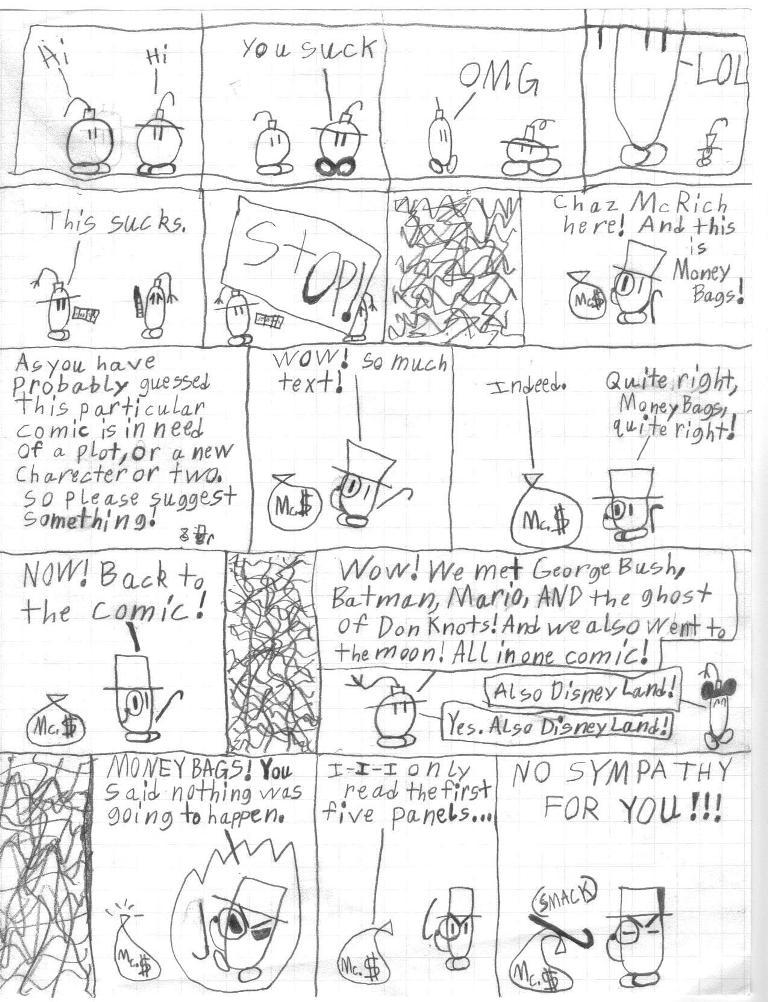 Hi
Hi
You suck
OMG
LOL
This sucks.
StOP!
Chaz McRich
here! And this
is
Money
Bags!
Mc$
As you have
probably guessed
this particular
comic is in need
of a plot, or a new
Charecter or two.
so please suggest
something!
WOW! so much
text!
Mc.$
Indeed.
Quite right,
Money Bags,
quite right!
Mc.$
NOW! Back to
the comic!
Mc.$
Wow! We met George Bush,
Batman, Mario, AND the ghost
of Don Knots! And we also went to
the moon! ALL in one comic!
Also Disney Land!
Yes. Also Disney Land!
MONEY BAGS! You
said nothing was
going to happen.
Mc.$
I-I-I only
read the first
five panels...
Mc.$
NO SYMPATHY
FOR YOU!!!
SMACK
Mc.$